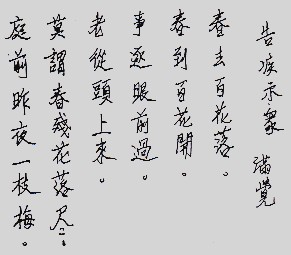 告疾示眾 滿覺
春去百花落。
春到百花開。
事逐眼前過。
老從頭上來。
莫謂春殘花落尽
庭前昨夜一枝梅。